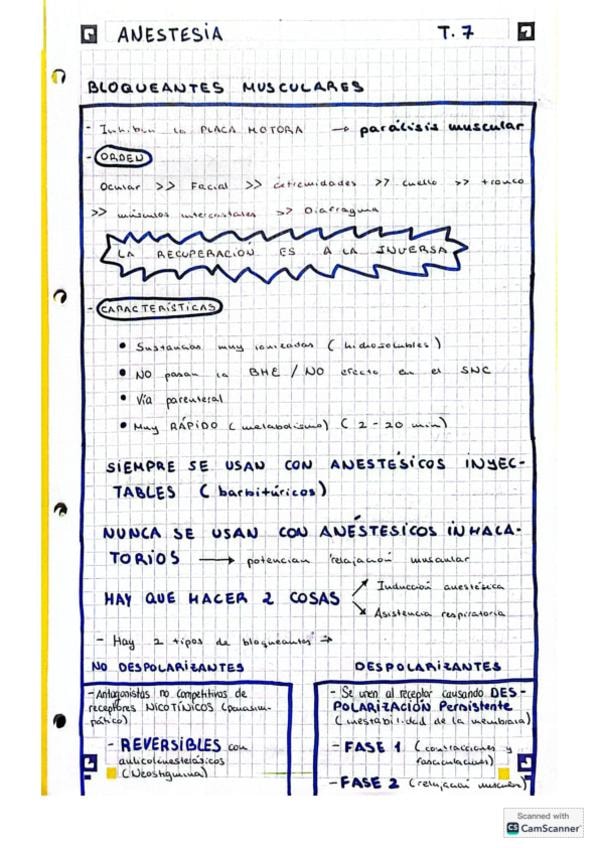 ANESTESIA T. 7
BLOQUEANTES MUSCULARES
- Inhiben la PLACA MOTORA → parálisis muscular
- ORDEN
Ocular >> Facial >> extremidades >> cuello >> tronco
>> músculos intercostales >> Diafragma
LA RECUPERACIÓN ES A LA INVERSA
- CARACTERÍSTICAS
• Sustancias muy ionizadas (hidrosolubles)
• NO pasan la BHE / NO efecto en el SNC
• Vía parenteral
• Muy RÁPIDO (metabolismo) (2-20 min)
SIEMPRE SE USAN CON ANESTÉSICOS INYEC-
TABLES (barbitúricos)
NUNCA SE USAN CON ANÉSTESICOS INHALA-
TORIOS → potencian relajación muscular
HAY QUE HACER 2 COSAS
Inducción anestésica
Asistencia respiratoria
- Hay 2 tipos de bloqueantes →
NO DESPOLARIZANTES
- Antagonistas no competitivos de
receptores NICOTÍNICOS (parasim-
pático)
- REVERSIBLES con
anticolinesterásicos
(Neostigmina)
DESPOLARIZANTES
- Se unen al receptor causando DES-
POLARIZACIÓN Persistente
(inestabilidad de la membrana)
- FASE 1 (contracciones y
fasciculaciones)
- FASE 2 (relajación muscular)
Scanned with
CS CamScanner